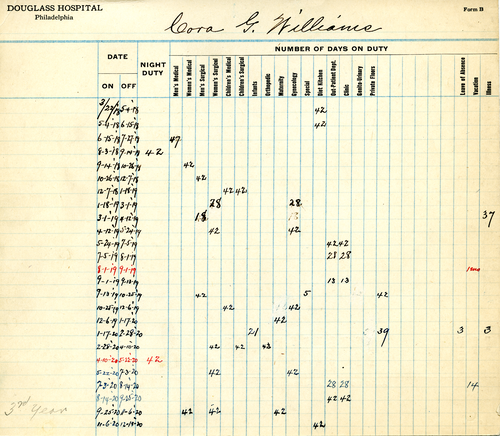 DOUGLASS HOSPITAL
Philadelphia
Form B
Cora G. Williams
NUMBER OF DAYS ON DUTY
DATE NIGHT DUTY
ON OFF Men's Medical Women's Medical Men's Surgical Women's Surgical Children's Medical Children's Surgical Infants Orthopedic Maternity Gynecology Special Diet Kitchen Out-Patient Dept. Clinic Genito-Urinary Private Floors Leave of Absence Vacation Illness
3/23/18 5-4-18 42
5-4-18 6-15-18 42
6-15-18 7-27-18 47
8-3-18 9-14-18 42
9-14-18 10-26-18 42
10-26-18 12-7-18 42
12-7-18 1-18-19 42 42
1-18-19 3-1-19 28 28
3-1-19 4-12-19 18 37
4-12-19 5-24-19 42 42
5-24-19 7-5-19 42 42
7-5-19 8-1-19 28 28
8-1-19 9-1-19 1mo
9-1-19 9-13-19 13 13
9-13-19 10-25-19 42 5 42
10-25-19 12-6-19 42 42
12-6-19 1-17-20 42
1-17-20 2-28-20 21 39 3 3
2-28-20 4-10-20 42 42 42
4-10-20 5-22-20 42
5-22-20 7-3-20 42 42
7-3-20 8-14-20 28 28 14
8-14-20 9-25-20 42 42
3rd Year 9-25-20 11-6-20 42 42 42
11-6-20 12-18-20 42